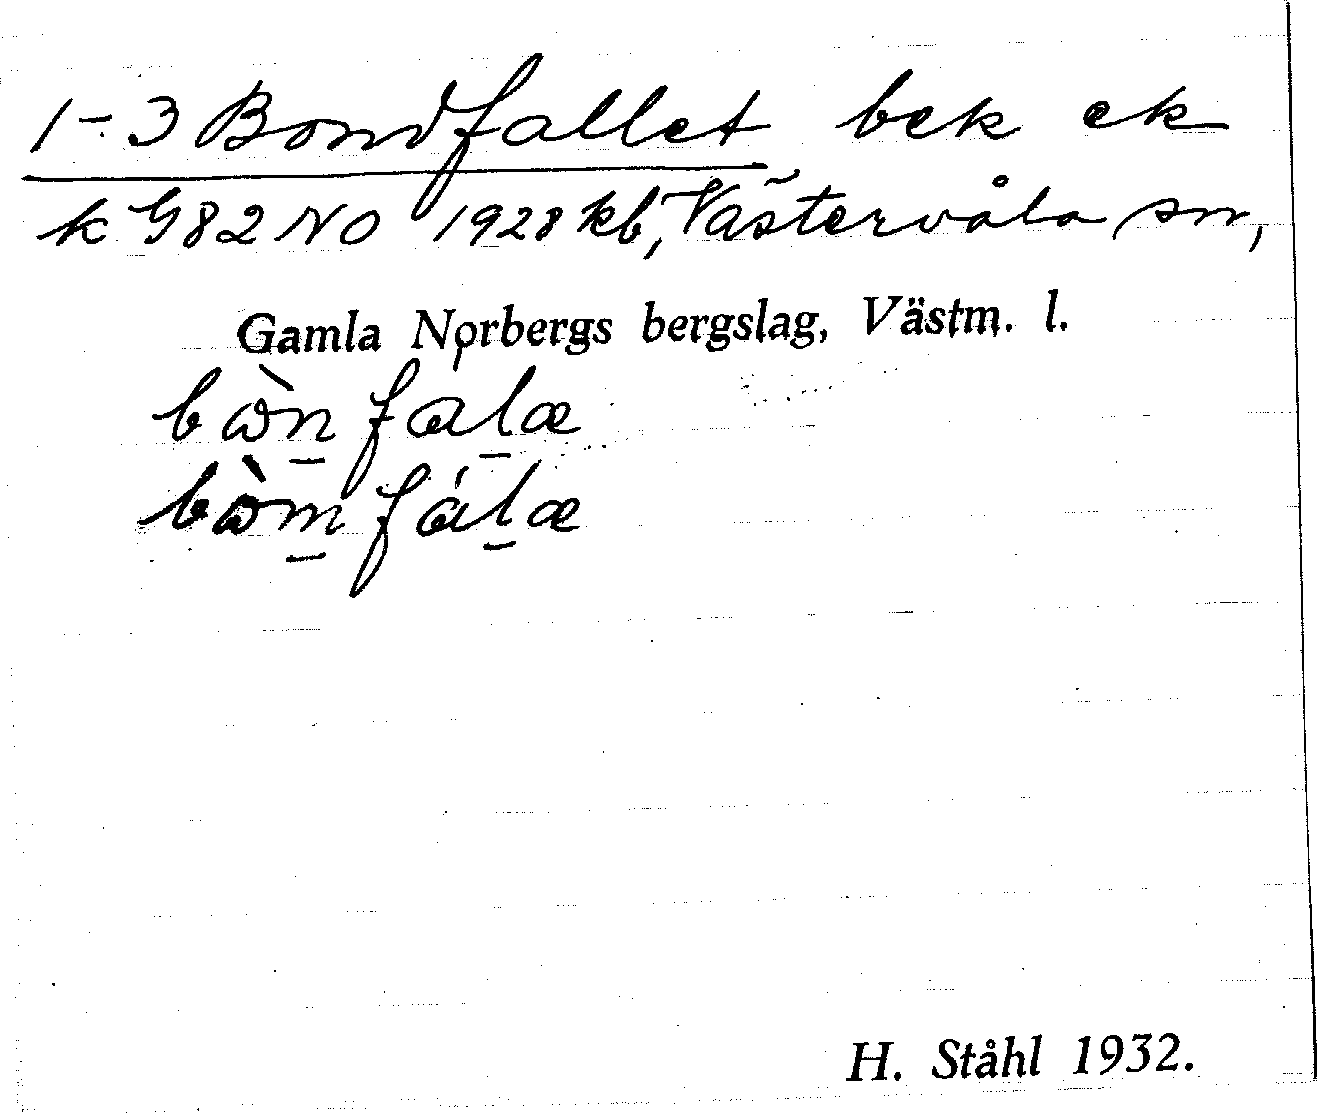 1-3 Bondfallet bek ek
k G82 NO 1928 kb, Västervåla sn,
Gamla Norbergs bergslag, Västm. l.
bὼn̲fal̲æ
bὼm̲fál̲æ
H. Ståhl 1932.